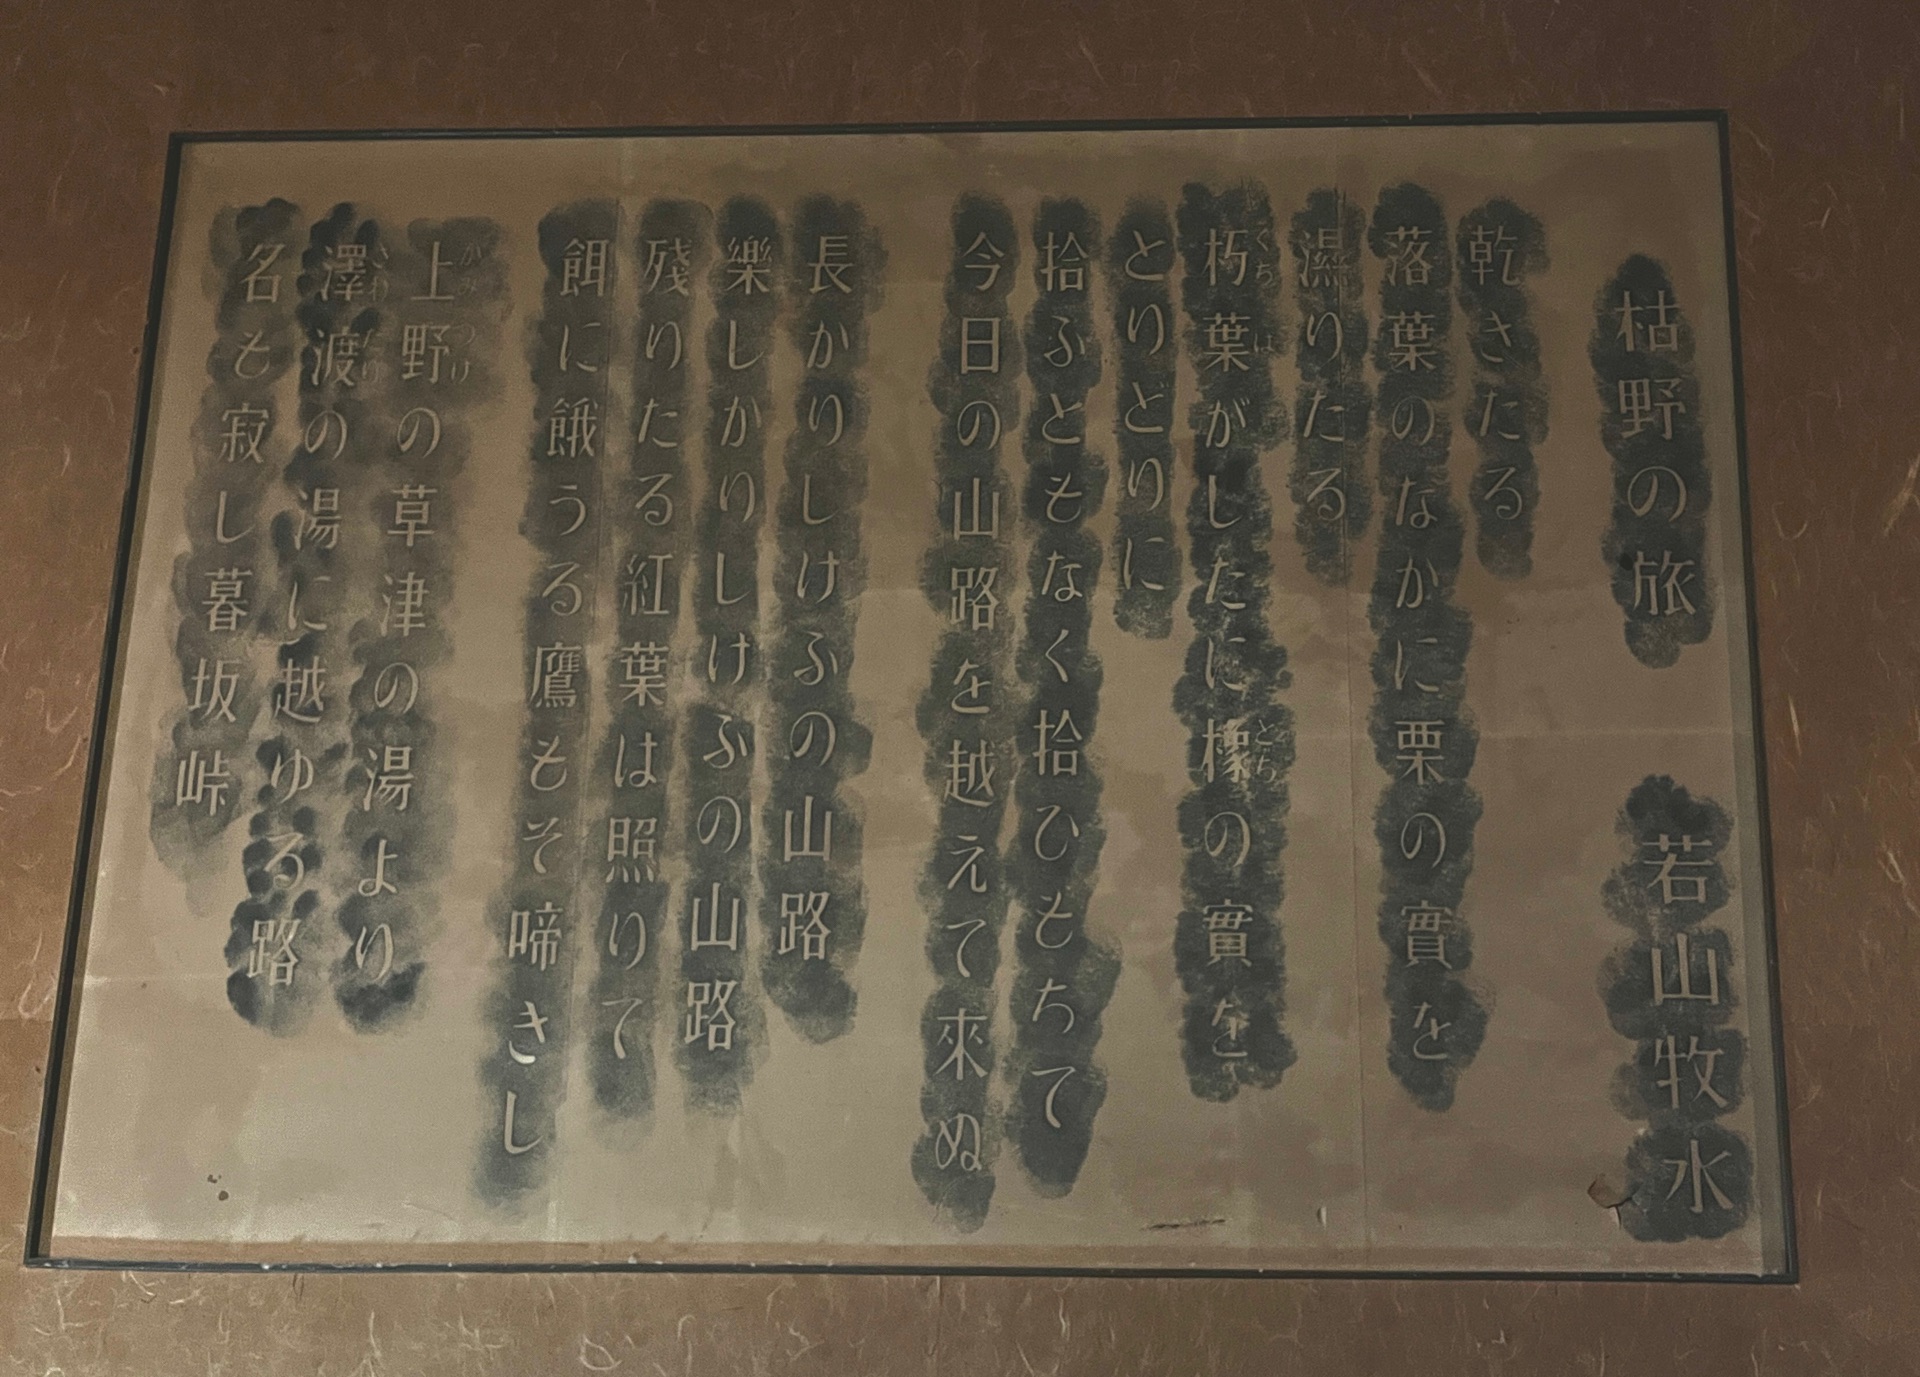 枯野の旅　若山牧水
乾きたる
落葉のなかに栗の實を
濕りたる
朽葉がしたに橡の實を
とりどりに
拾ふともなく拾ひもちて
今日の山路を越えて來ぬ
長かりしけふの山路
樂しかりしけふの山路
殘りたる紅葉は照りて
餌に餓うる鷹もぞ啼きし
上野の草津の湯より
澤渡の湯に越ゆる路
名も寂し暮坂峠